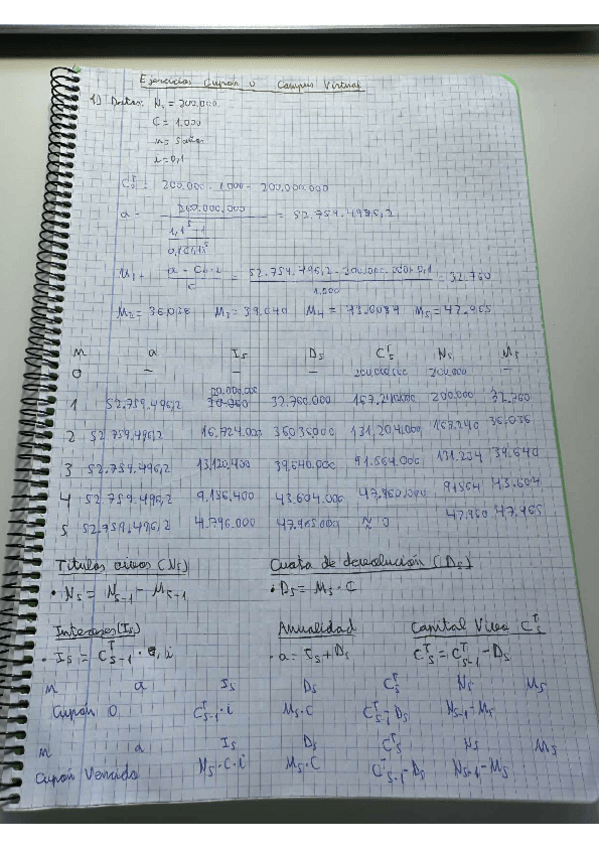 Ejercicios Cupón 0 Campus Virtual
1) Datos: N₁ = 200.000
C = 1.000
n = 5 años
i = 0,1
C₀ᵀ = 200.000 · 1.000 = 200.000.000
a = 200.000.000 / = 52.759.496,2
1,1⁵ - 1
M₁ = a - C₀ · i / C = 52.759.496,2 - 200.000.000 · 0,1 / 1.000 = 32.760
M₂ = 36,036 M₃ = 39.640 M₄ = M₅ = 47.965
n a Is Ds Csᵀ Ns Ms
0 — — — 200.000.000 200.000 —
20.000.000
1 52.759.496,2 32.760.000 167.240.000 200.000 32.760
2 52.759.496,2 16.724.000 36036000 131,204.000 167.240 36.036
3 52.759.496,2 13,120,400 39.640.000 91.564.000 131.204 39.640
4 52.759.496,2 9.156.400 43.604.000 47,960.000 91564 43.604
5 52.759.496,2 4.796.000 47.965.000 ≈ 0 47.960 47.965
Títulos vivos (Ns) Cuota de devolución (Ds)
• Ns = Ns-1 - Ms-1 • Ds = Ms · C
Intereses (Is) Anualidad Capital Vivo Csᵀ
• Is = Cs-1ᵀ · i • a = Is + Ds Csᵀ = Cs-1ᵀ - Ds
n a Is Ds Csᵀ Ns Ms
Cupón 0 Cs-1ᵀ · i Ms · C Cs-1ᵀ - Ds Ns-1 - Ms
n a Is Ds Csᵀ Ns Ms
Cupón Vencido Ns · C · i Ms · C Cs-1ᵀ - Ds Ns-1 - Ms